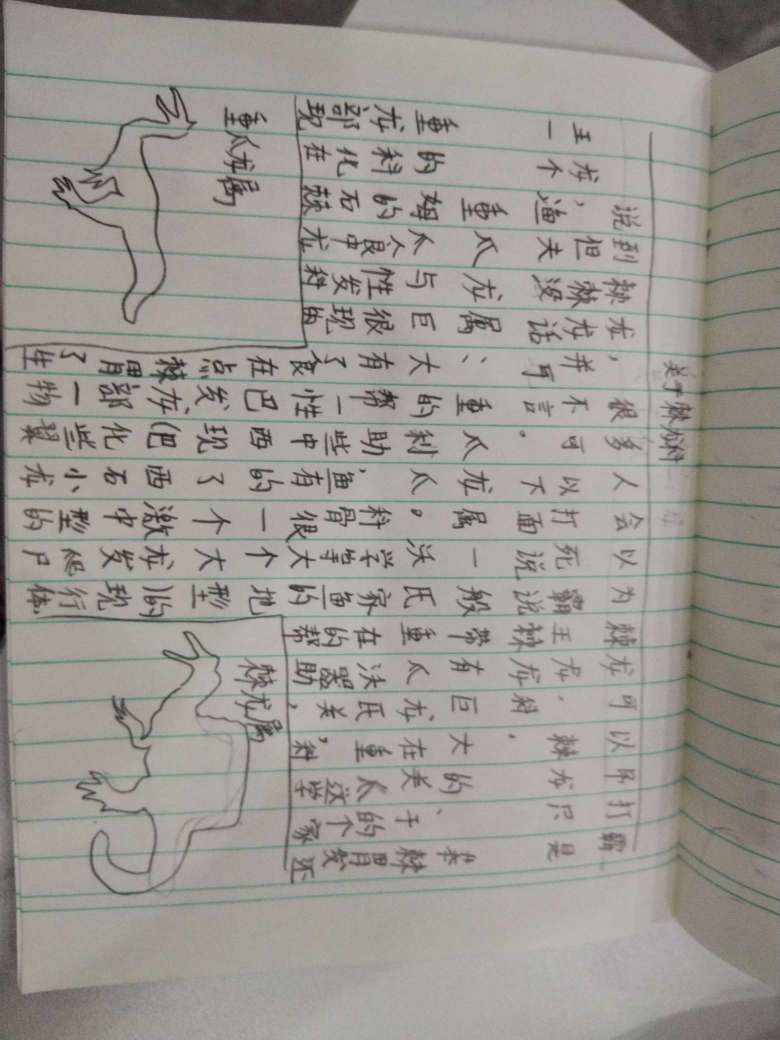 关于棘龙科
说到棘龙，很多人会以为棘龙可以吊打霸
王龙，但棘龙并不可以打死霸王龙.棘龙只是
一个渔夫没话可言。下面说说棘龙科.
重爪龙属、重爪龙属一般带有巨大的、基
重的姆爪与巨大的利爪。沃氏重爪龙在关于棘
龙科的食性很有帮助，科学家在沃氏重爪的胃
部化石中发现了一些鱼骨等鱼的器关，这个发
现在棘龙科的食性中有很大的帮助，科学家还
在巴西的一个地
点发现了个大型
棘龙(巴西激龙)的
胃部化石中发现
了一些小型爬行
生物翼龙的尸体
重爪龙属
棘龙属